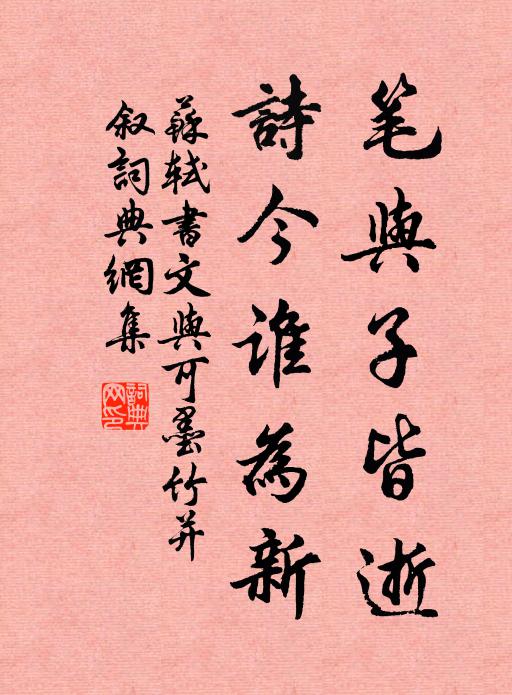 笔與子皆逝
詩今誰為新
蘇軾書文與可墨竹并
叙詞典網集
詞典網印